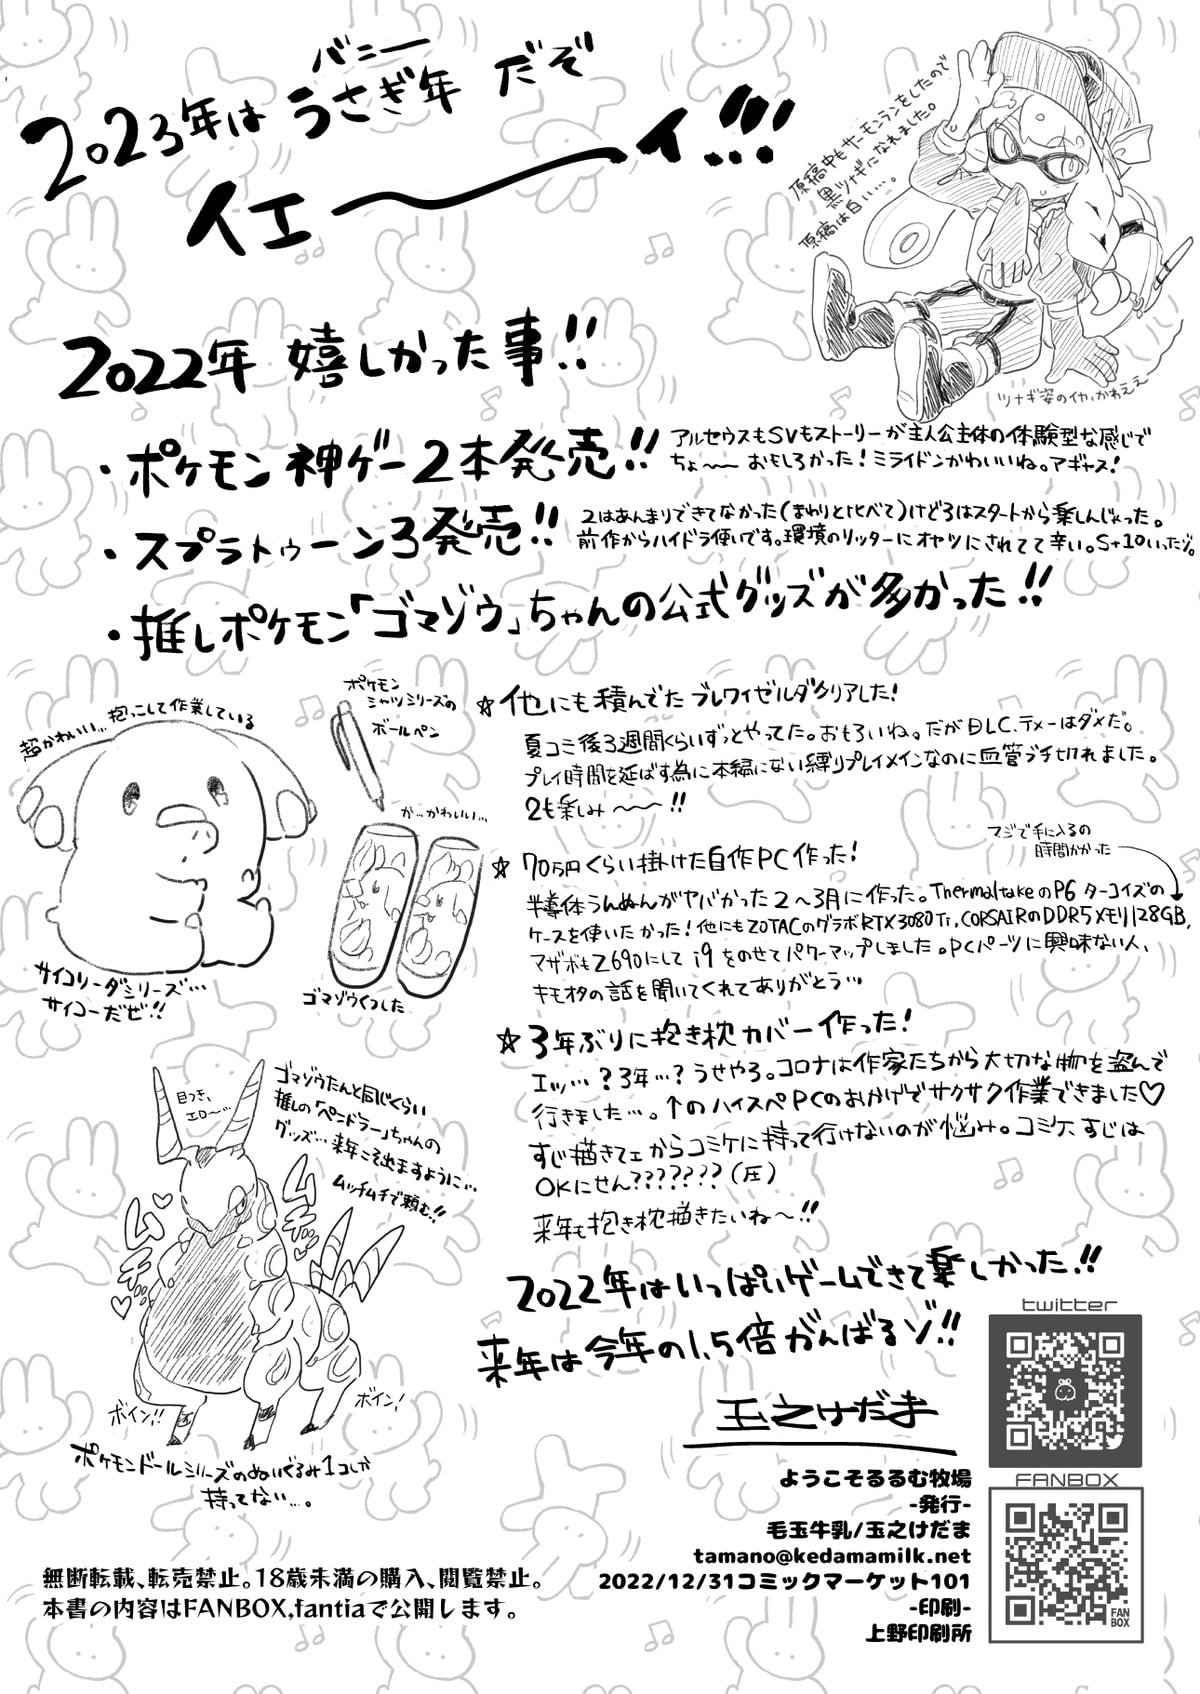 バニー
2023年は うさぎ年 だぞ
イエ――ィ!!!
原稿中もサーモンランをしたので
黒ツナギになれました。
原稿は白い…。
ツナギ姿のイカ、かわええ
2022年 嬉しかった事!!
・ポケモン 神ゲー2本発売!!
アルセウスもSVもストーリーが主人公主体の体験型な感じで
ちょ〜〜 おもしろかった!ミライドンかわいいね。アギャス!
・スプラトゥーン3発売!!
2はあんまりできてなかった(まわりと比べて)けど3はスタートから楽しんじゃった。
前作からハイドラ使いです。環境のリッターにオヤツにされてて辛い。S+10いったゾ。
・推しポケモン「ゴマゾウ」ちゃんの公式グッズが多かった!!
超かわいい…抱っこして作業している
サイコソーダシリーズ…
サイコーだぜ!!
ポケモン
シャツシリーズの
ボールペン
か…かわいい…
ゴマゾウくつした
☆他にも積んでた ブレワイゼルダクリアした!
夏コミ後3週間くらいずっとやってた。おもろいね。だがDLC、テメーはダメだ。
プレイ時間を延ばす為に本編にない縛りプレイメインなのに血管ブチ切れました。
2も楽しみ〜〜!!
☆70万円くらい掛けた自作PC作った!
マジで手に入るの
時間かかった
半導体うんぬんがヤバかった2〜3月に作った。ThermaltakeのP6 ターコイズの
ケースを使いたかった!他にもZOTACのグラボRTX3080Ti,CORSAIRのDDR5メモリ128GB,
マザボもZ690にして i9 をのせてパワーマップしました。PCパーツに興味ない人、
キモオタの話を聞いてくれてありがとう…
☆3年ぶりに抱き枕カバー作った!
エッ…?3年…?うせやろ。コロナは作家たちから大切な物を盗んで
行きました…。↑のハイスペPCのおかげでサクサク作業できました♡
すじ描きてェからコミケに持って行けないのが悩み。コミケ、すじは
OKにせん???????(圧)
来年も抱き枕描きたいね〜!!
目つき、
エロ〜…
ゴマゾウたんと同じくらい
推しの「ペンドラー」ちゃんの
グッズ…来年こそ出ますように…
ムッチムチで頼む!!
ムチ♡
ムチッ♡
ボイン!!
ボイン!
ポケモンドールシリーズのぬいぐるみ1コしか
持ってない…。
2022年はいっぱいゲームできて楽しかった!!
来年は今年の1.5倍がんばるゾ!!
玉之けだま
twitter
FANBOX
FAN
BOX
ようこそるるむ牧場
-発行-
毛玉牛乳/玉之けだま
tamano@kedamamilk.net
2022/12/31コミックマーケット101
-印刷-
上野印刷所
無断転載、転売禁止。18歳未満の購入、閲覧禁止。
本書の内容はFANBOX,fantiaで公開します。